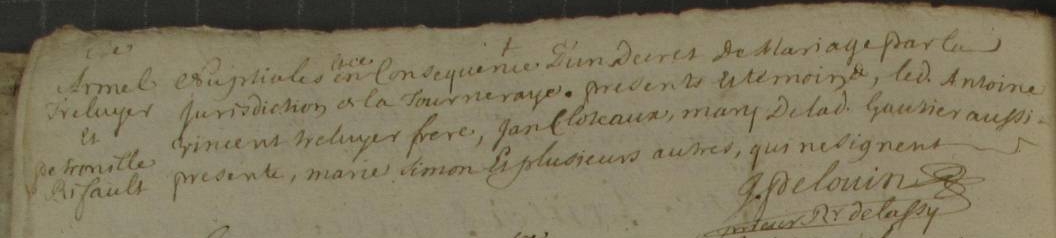 Armel
Treluyer
Et
petronille
Rissault
Nuptiales en Consequence D'un Decret De Mariage par la
Jurisdiction de la Tourneraye. presents et temoins, led. Antoine
vincent treluyer frere, Jan Cloteaux, mary De lad. Gautier aussi
presente, marie Simon Et plusieurs autres, qui ne signent
J. Delouin
prieur Rr. de lassy